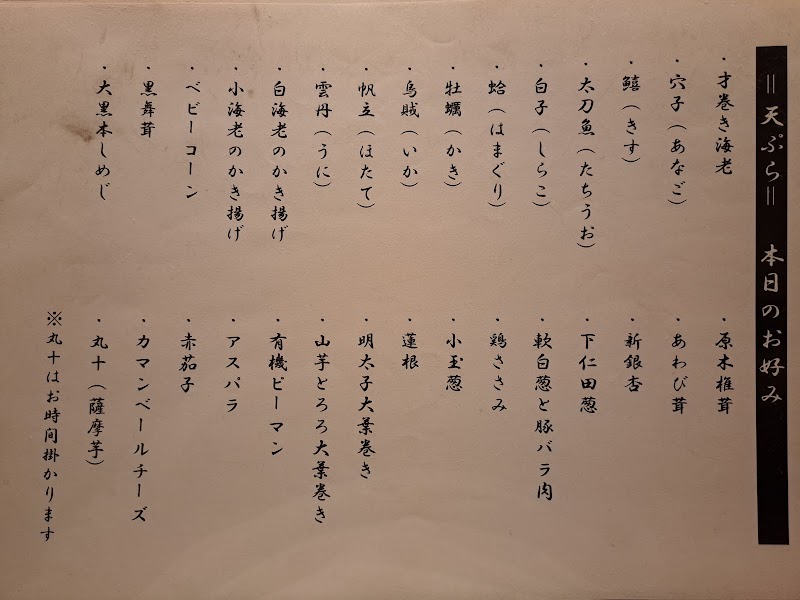 ＝天ぷら＝ 本日のお好み
・才巻き海老
・穴子（あなご）
・鱚（きす）
・太刀魚（たちうお）
・白子（しらこ）
・蛤（はまぐり）
・牡蠣（かき）
・烏賊（いか）
・帆立（ほたて）
・雲丹（うに）
・白海老のかき揚げ
・小海老のかき揚げ
・ベビーコーン
・黒舞茸
・大黒本しめじ
・原木椎茸
・あわび茸
・新銀杏
・下仁田葱
・軟白葱と豚バラ肉
・鶏ささみ
・小玉葱
・蓮根
・明太子大葉巻き
・山芋とろろ大葉巻き
・有機ピーマン
・アスパラ
・赤茄子
・カマンベールチーズ
・丸十（薩摩芋）
※丸十はお時間掛かります